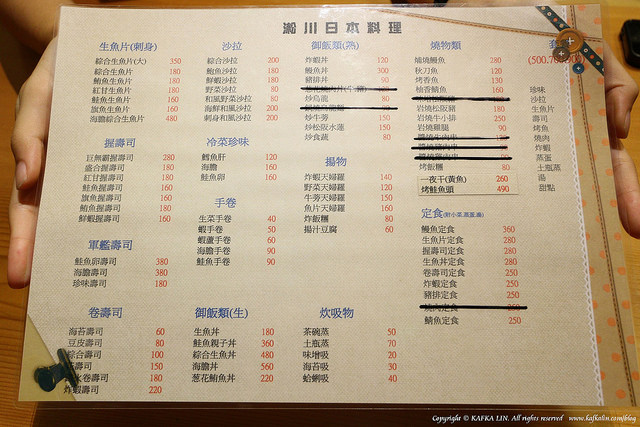 瀧川日本料理
生魚片(刺身)
綜合生魚片(大) 350
綜合生魚片 180
鮪魚生魚片 180
紅甘生魚片 180
鮭魚生魚片 160
旗魚生魚片 160
海膽綜合生魚片 480
握壽司
巨無霸握壽司 280
盛合握壽司 180
紅甘握壽司 180
鮭魚握壽司 160
旗魚握壽司 160
鮪魚握壽司 180
鮮蝦握壽司 160
軍艦壽司
鮭魚卵壽司 380
海膽壽司 380
珍味壽司 180
卷壽司
海苔壽司 60
豆皮壽司 80
綜合壽司 100
壽司 150
卷壽司 180
炸蝦壽司 220
沙拉
綜合沙拉 200
鮑魚沙拉 180
鮮蝦沙拉 180
野菜沙拉 80
和風野菜沙拉 80
海鮮和風沙拉 200
刺身和風沙拉 200
冷菜珍味
鱈魚肝 120
海膽 160
鮭魚卵 160
手卷
生菜手卷 40
蝦手卷 50
蝦蘆手卷 60
海膽手卷 90
鮭魚手卷 90
御飯類(生)
生魚丼 180
鮭魚親子丼 360
綜合生魚丼 480
海膽丼 560
葱花鮪魚丼 220
御飯類(熟)
炸蝦丼 120
鰻魚丼 300
豬排丼 90
炒烏龍 80
炒牛蒡 150
炒松阪水蓮 150
炒食蔬 80
揚物
炸蝦天婦羅 140
野菜天婦羅 120
牛蒡天婦羅 150
魚片天婦羅 160
炸飯糰 80
揚汁豆腐 60
炊吸物
茶碗蒸 50
土瓶蒸 70
味增吸 20
海苔吸 30
蛤蜊吸 40
燒物類
蒲燒鰻魚 280
秋刀魚 120
烤香魚 130
柚香鯖魚 160
岩燒松阪豬 180
岩燒牛小排 250
岩燒雞腿 90
烤飯糰 80
一夜干(黃魚) 260
烤鮭魚頭 490
定食
鰻魚定食 360
生魚片定食 280
握壽司定食 280
生魚丼定食 280
卷壽司定食 250
炸蝦定食 250
豬排定食 250
鯖魚定食 250
珍味
沙拉
生魚片
壽司
烤魚
燒肉
炸蝦
蒸蛋
土瓶蒸
湯
甜點
Copyright © KAFKA LIN. All rights reserved www.kafkalin.com/blog